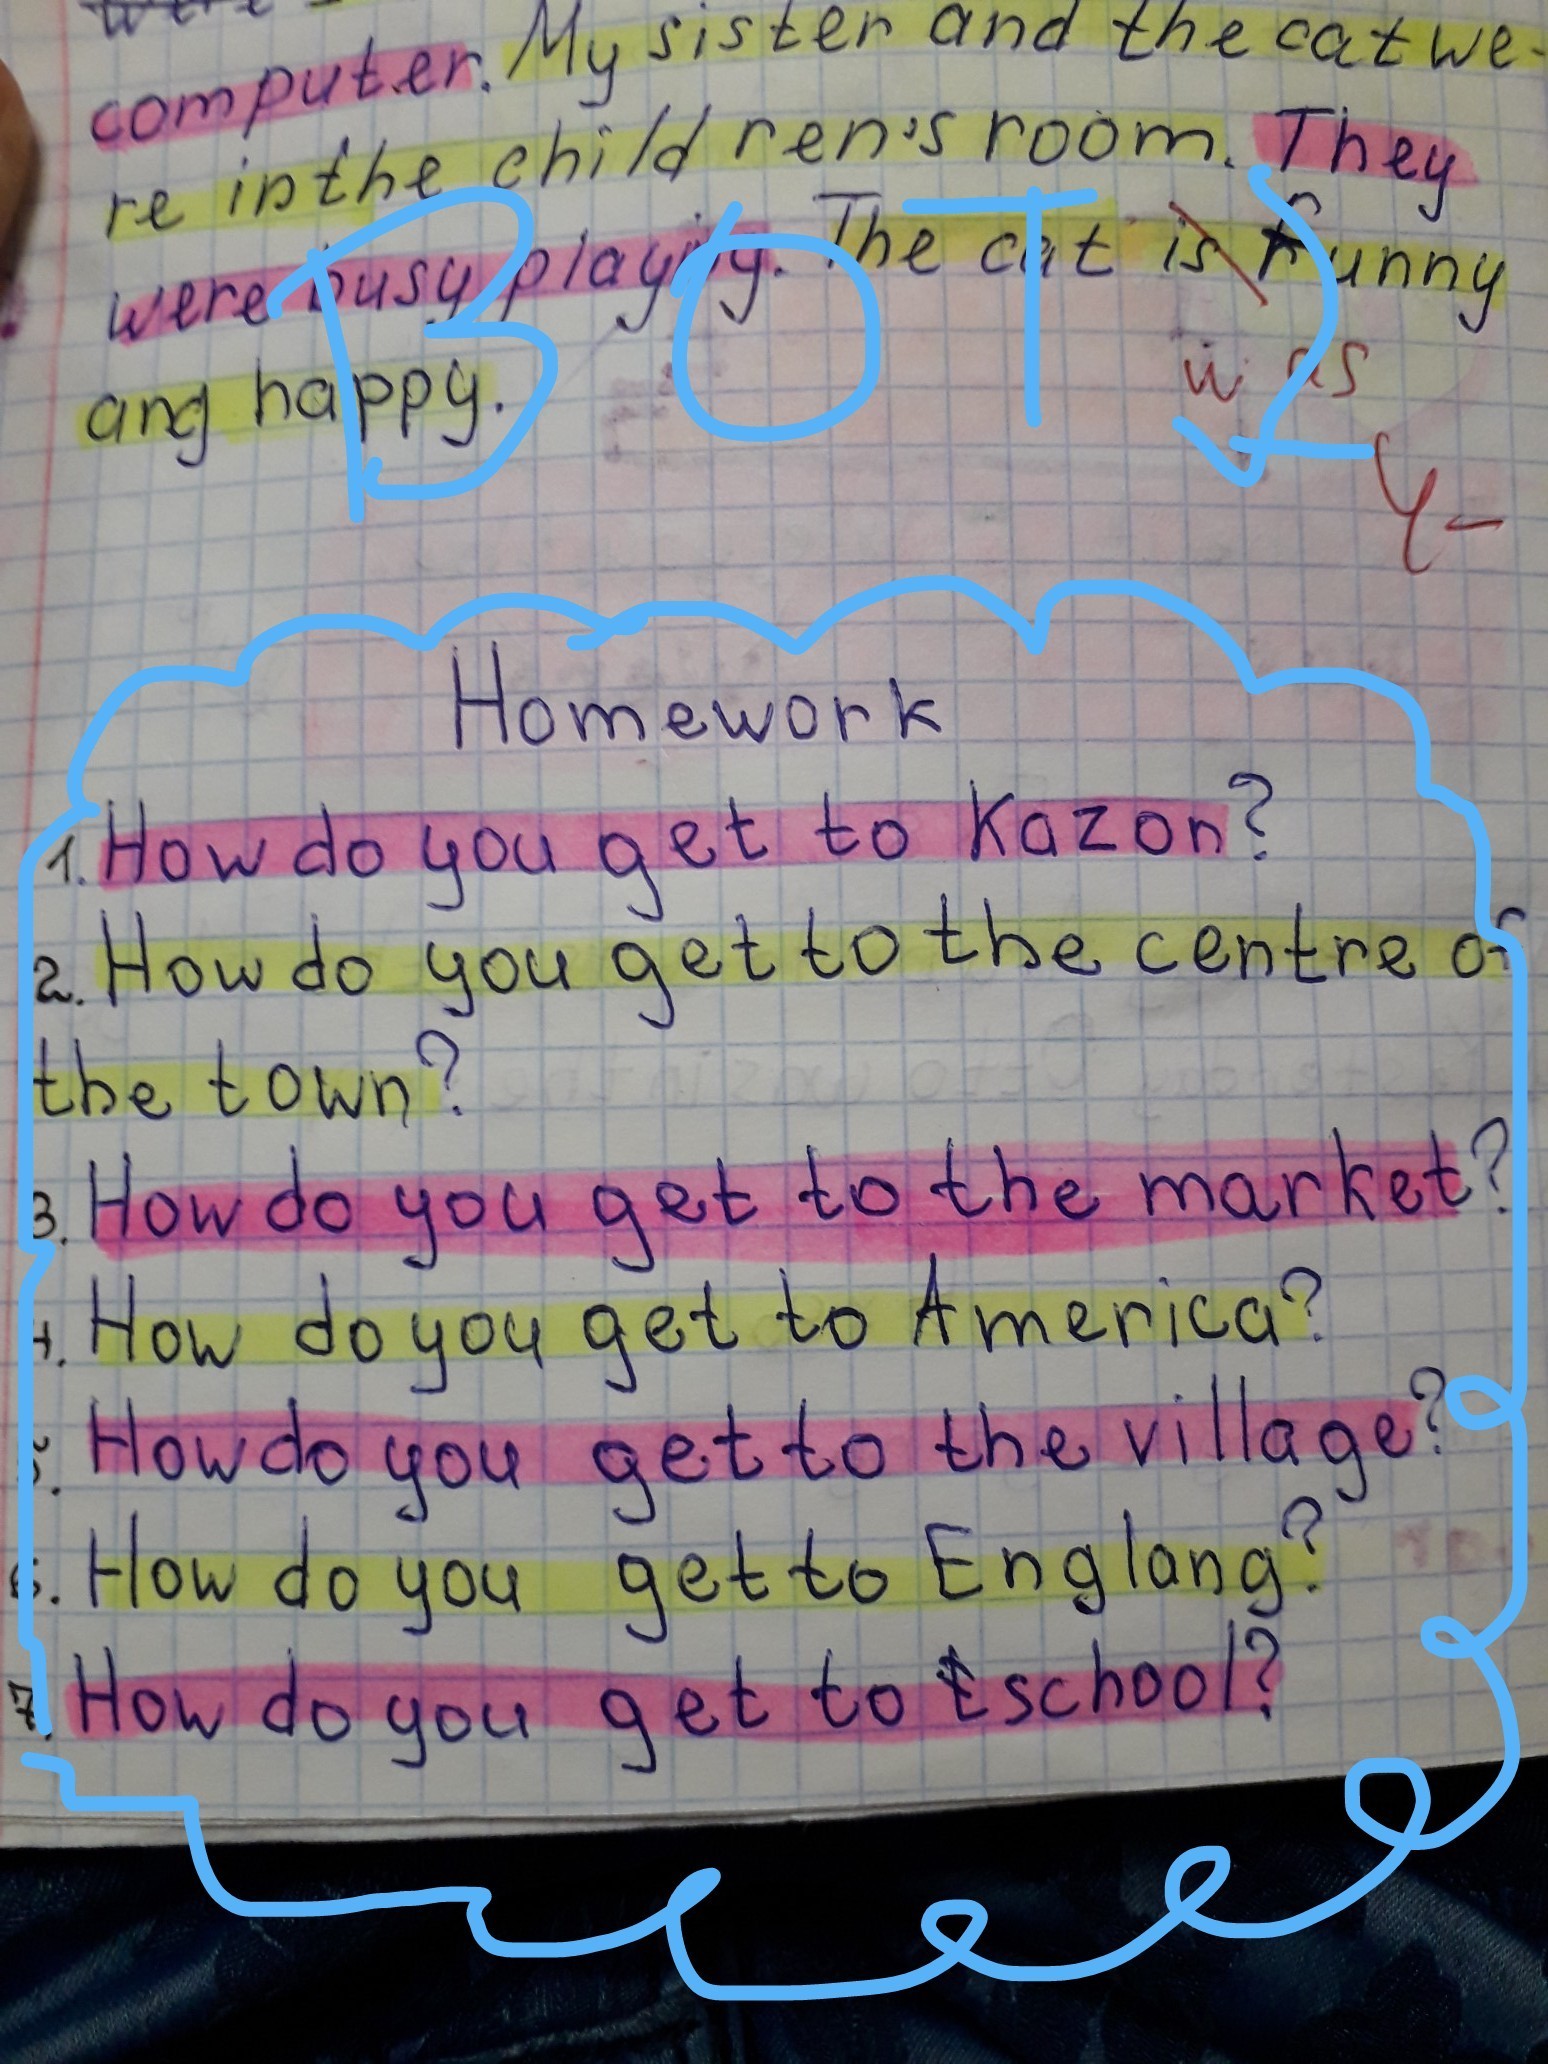 computer. My sister and the cat we-
re in the children's room. They
were busy playing. The cat is funny
was
ang happy.
ВОТ
4-
Homework
1. How do you get to Kazon?
2. How do you get to the centre of
the town?
3. How do you get to the market?
4. How do you get to America?
5. How do you get to the village?
6. How do you get to Englang?
7. How do you get to tschool?